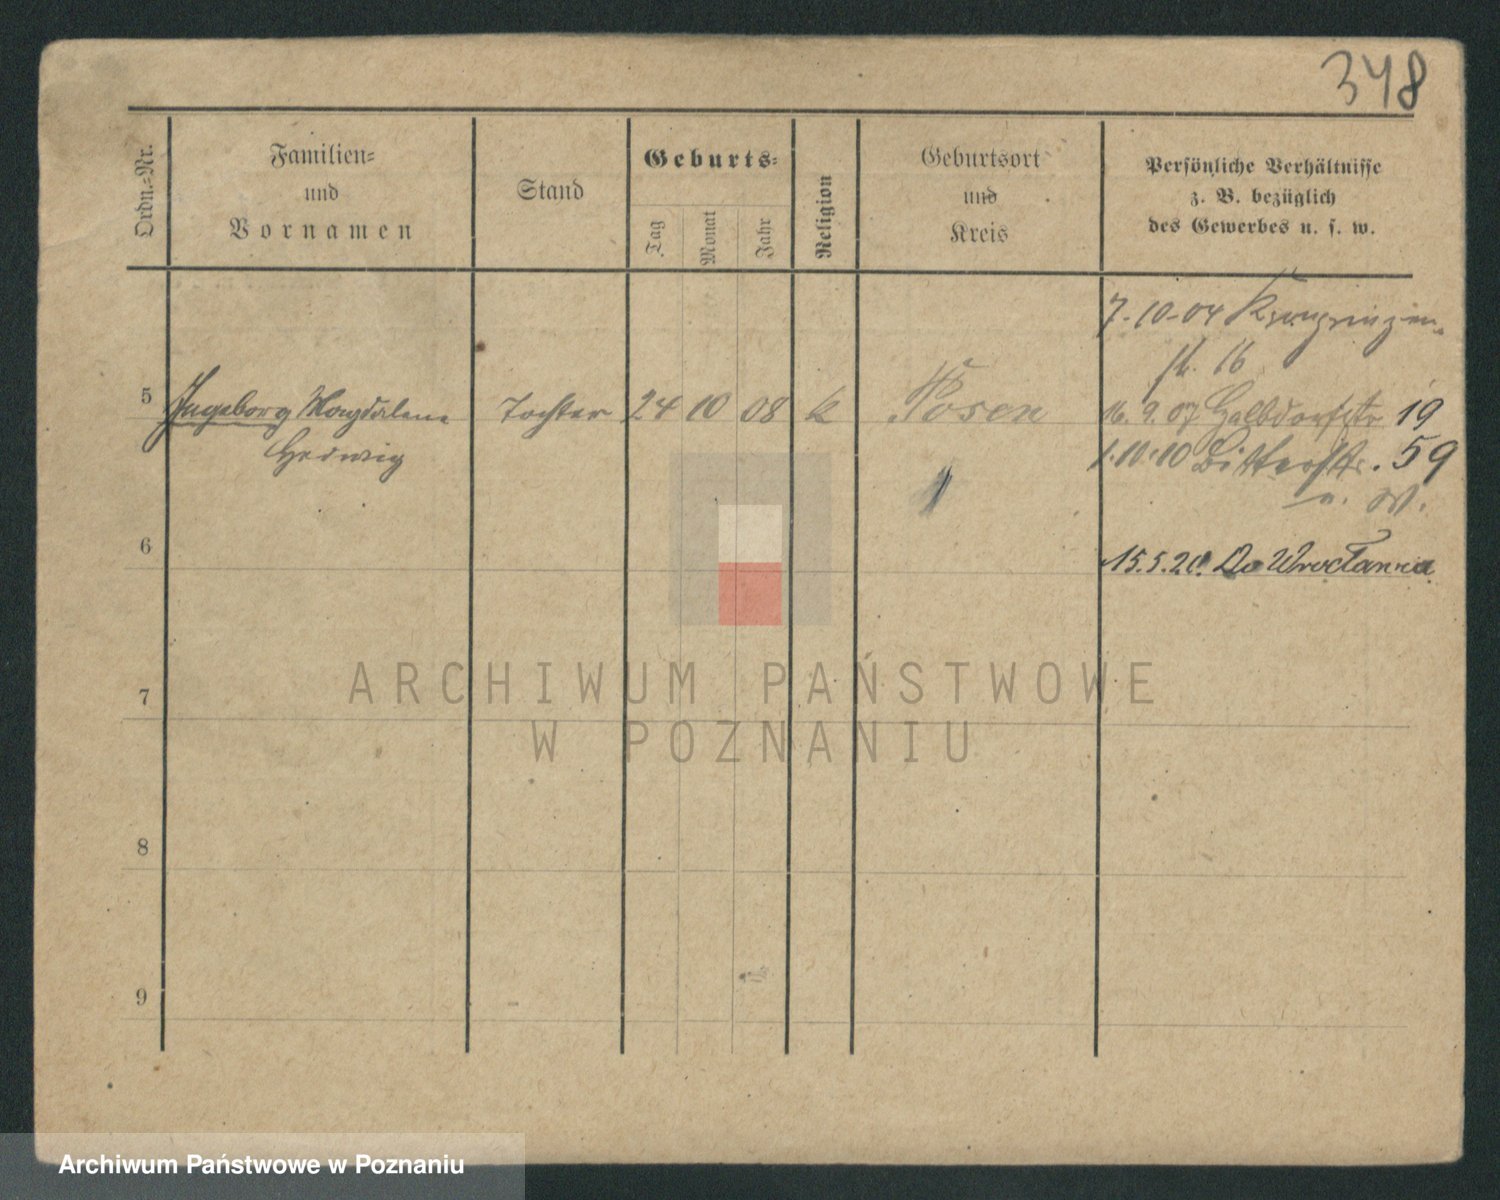 348
Ordn.-Nr.
Familien-
und
Vornamen
Stand
Geburts-
Tag
Monat
Jahr
Religion
Geburtsort
und
Kreis
Persönliche Verhältnisse
z. B. bezüglich
des Gewerbes u. s. w.
7.10.04 Kronprinzen-
str. 16
5 Ingeborg Magdalene Tochter 24 10 08 k Posen 16.9.07 Halbdorfstr 19
Hedwig
1.10.10 Bitterstr. 59
6
15.5.20. Do Wrocławia
7
8
9
ARCHIWUM PAŃSTWOWE
W POZNANIU
Archiwum Państwowe w Poznaniu